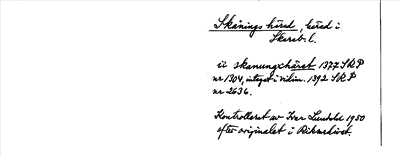 Skånings härad, härad i
Skarab. l.
ii skanungxhäræt 1377 SRP
nr 1304, intaget i vidim. 1392 SRP
nr 2636.
Kontrollerat av Ivar Lundahl 1950
efter originalet i Riksarkivet.